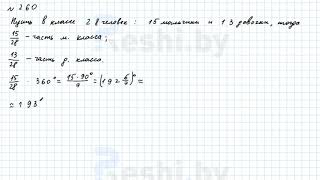 № 260
Пусть в классе 28 человек: 15 мальчики и 13 девочки, тогда
15/28 - часть м. класса;
13/28 - часть д. класса.
15/28 · 360° = 15·90°/7 = (192 6/7)° ≈
≈ 193°
Reshi.by